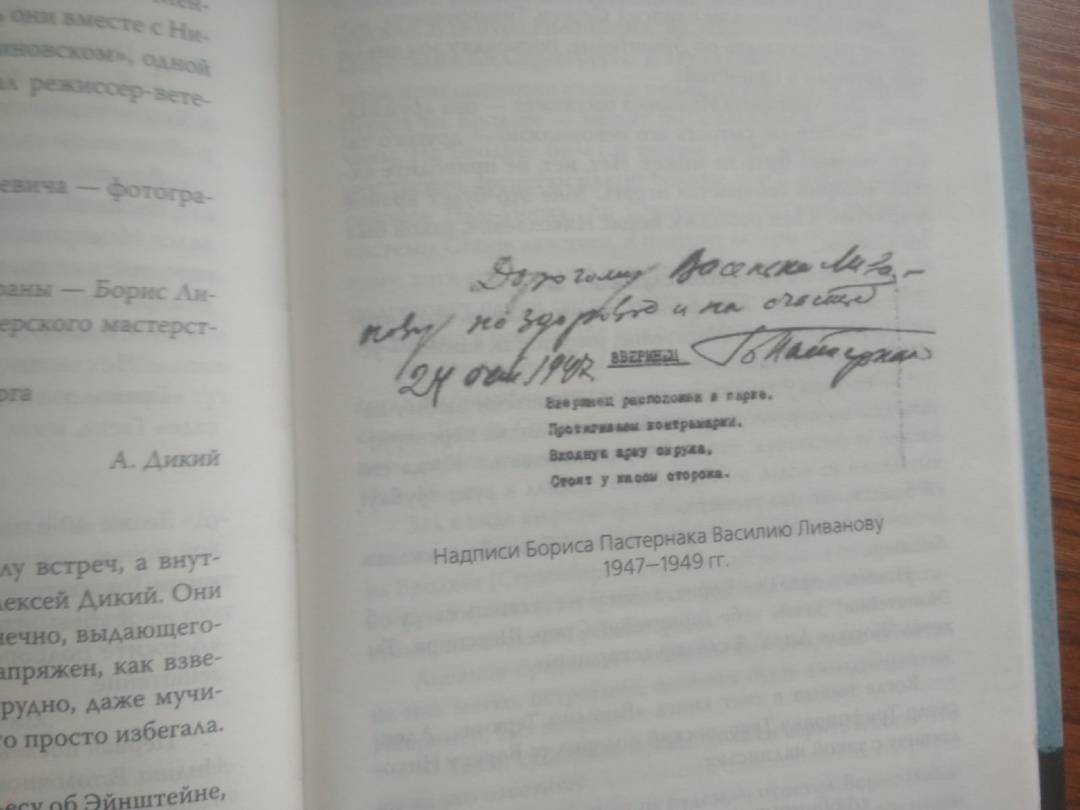 они вместе с Ни-
иновском», одной
л режиссер-вете-
евича — фотогра-
раны — Борис Ли-
ерского мастерст-
ога
А. Дикий
лу встреч, а внут-
лексей Дикий. Они
нечно, выдающего-
апряжен, как взве-
рудно, даже мучи-
го просто избегала.
есу об Эйнштейне,
Дорогому Васеньке Лива-
нову на здоровье и на счастье
24 окт 1947 ЗВЕРИНЕЦ Б Пастернак
Зверинец расположен в парке.
Протягиваем контрамарки.
Входную арку окружа,
Стоят у кассы сторожа.
Надписи Бориса Пастернака Василию Ливанову
1947—1949 гг.